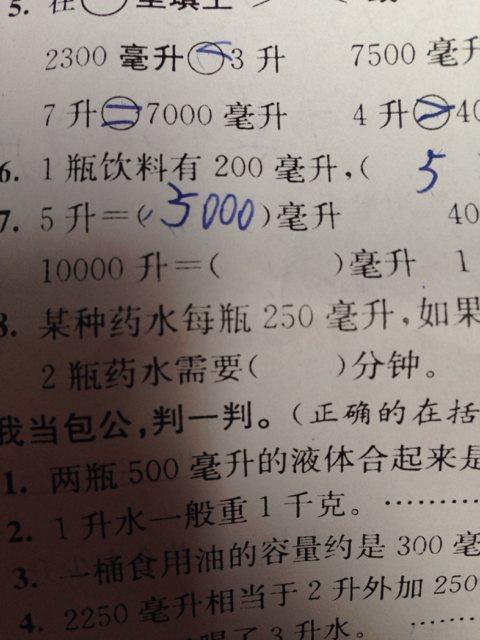 5. 在○里填上
2300 毫升 3 升 7500 毫升
7 升=7000 毫升 4 升>40
6. 1 瓶饮料有 200 毫升,( 5
7. 5 升=( 5000 )毫升 40
10000 升=( )毫升 1
8. 某种药水每瓶 250 毫升,如果
2 瓶药水需要( )分钟。
我当包公,判一判。(正确的在括
1. 两瓶 500 毫升的液体合起来是
2. 1 升水一般重 1 千克。………
3. 一桶食用油的容量约是 300 毫
4. 2250 毫升相当于 2 升外加 250
喝了 3 升水。 ……